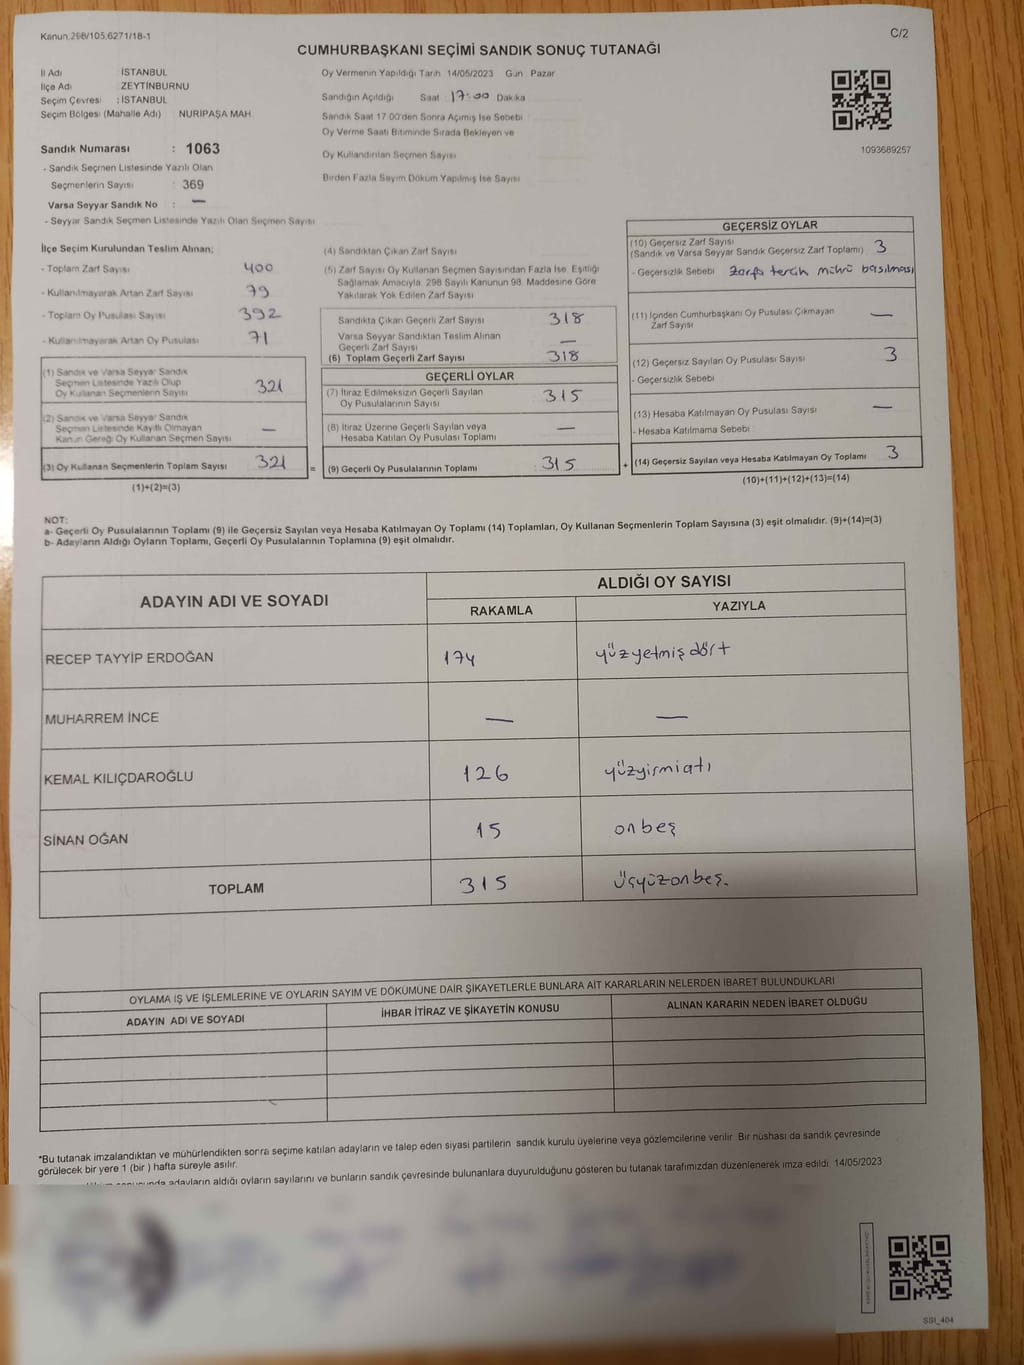 Kanun.298/105,6271/18-1
C/2
CUMHURBAŞKANI SEÇİMİ SANDIK SONUÇ TUTANAĞI
İl Adı İSTANBUL
İlçe Adı ZEYTİNBURNU
Seçim Çevresi : İSTANBUL
Seçim Bölgesi (Mahalle Adı) NURİPAŞA MAH.
Sandık Numarası : 1063
- Sandık Seçmen Listesinde Yazılı Olan
Seçmenlerin Sayısı : 369
Varsa Seyyar Sandık No : —
- Seyyar Sandık Seçmen Listesinde Yazılı Olan Seçmen Sayısı
Oy Vermenin Yapıldığı Tarih 14/05/2023 Gün Pazar
Sandığın Açıldığı Saat 17:00 Dakika
Sandık Saat 17.00'den Sonra Açılmış İse Sebebi
Oy Verme Saati Bitiminde Sırada Bekleyen ve
Oy Kullandırılan Seçmen Sayısı
Birden Fazla Sayım Döküm Yapılmış İse Sayısı
1093689257
İlçe Seçim Kurulundan Teslim Alınan;
- Toplam Zarf Sayısı 400
- Kullanılmayarak Artan Zarf Sayısı 79
- Toplam Oy Pusulası Sayısı 392
- Kullanılmayarak Artan Oy Pusulası 71
(1) Sandık ve Varsa Seyyar Sandık
Seçmen Listesinde Yazılı Olup
Oy Kullanan Seçmenlerin Sayısı 321
(2) Sandık ve Varsa Seyyar Sandık
Seçmen Listesinde Kayıtlı Olmayan
Kanun Gereği Oy Kullanan Seçmen Sayısı —
(3) Oy Kullanan Seçmenlerin Toplam Sayısı 321
(1)+(2)=(3)
=
(4) Sandıktan Çıkan Zarf Sayısı
(5) Zarf Sayısı Oy Kullanan Seçmen Sayısından Fazla İse, Eşitliği
Sağlamak Amacıyla, 298 Sayılı Kanunun 98. Maddesine Göre
Yakılarak Yok Edilen Zarf Sayısı
Sandıkta Çıkan Geçerli Zarf Sayısı 318
Varsa Seyyar Sandıktan Teslim Alınan
Geçerli Zarf Sayısı —
(6) Toplam Geçerli Zarf Sayısı 318
GEÇERLİ OYLAR
(7) İtiraz Edilmeksizin Geçerli Sayılan
Oy Pusulalarının Sayısı 315
(8) İtiraz Üzerine Geçerli Sayılan veya
Hesaba Katılan Oy Pusulası Toplamı —
(9) Geçerli Oy Pusulalarının Toplamı : 315
+
GEÇERSİZ OYLAR
(10) Geçersiz Zarf Sayısı
(Sandık ve Varsa Seyyar Sandık Geçersiz Zarf Toplamı) 3
- Geçersizlik Sebebi zarfa tercih mührü basılması
(11) İçinden Cumhurbaşkanı Oy Pusulası Çıkmayan
Zarf Sayısı —
(12) Geçersiz Sayılan Oy Pusulası Sayısı 3
- Geçersizlik Sebebi
(13) Hesaba Katılmayan Oy Pusulası Sayısı —
- Hesaba Katılmama Sebebi
(14) Geçersiz Sayılan veya Hesaba Katılmayan Oy Toplamı 3
(10)+(11)+(12)+(13)=(14)
NOT:
a- Geçerli Oy Pusulalarının Toplamı (9) ile Geçersiz Sayılan veya Hesaba Katılmayan Oy Toplamı (14) Toplamları, Oy Kullanan Seçmenlerin Toplam Sayısına (3) eşit olmalıdır. (9)+(14)=(3)
b- Adayların Aldığı Oyların Toplamı, Geçerli Oy Pusulalarının Toplamına (9) eşit olmalıdır.
ADAYIN ADI VE SOYADI
ALDIĞI OY SAYISI
RAKAMLA YAZIYLA
RECEP TAYYİP ERDOĞAN 174 yüzyetmişdört
MUHARREM İNCE — —
KEMAL KILIÇDAROĞLU 126 yüzyirmiatı
SİNAN OĞAN 15 onbeş
TOPLAM 315 üçyüzonbeş.
OYLAMA İŞ VE İŞLEMLERİNE VE OYLARIN SAYIM VE DÖKÜMÜNE DAİR ŞİKAYETLERLE BUNLARA AİT KARARLARIN NELERDEN İBARET BULUNDUKLARI
ADAYIN ADI VE SOYADI İHBAR İTİRAZ VE ŞİKAYETİN KONUSU ALINAN KARARIN NEDEN İBARET OLDUĞU
*Bu tutanak imzalandıktan ve mühürlendikten sonra seçime katılan adayların ve talep eden siyasi partilerin sandık kurulu üyelerine veya gözlemcilerine verilir. Bir nüshası da sandık çevresinde
görülecek bir yere 1 (bir ) hafta süreyle asılır.
adayların aldığı oyların sayılarını ve bunların sandık çevresinde bulunanlara duyurulduğunu gösteren bu tutanak tarafımızdan düzenlenerek imza edildi. 14/05/2023
SSI_404